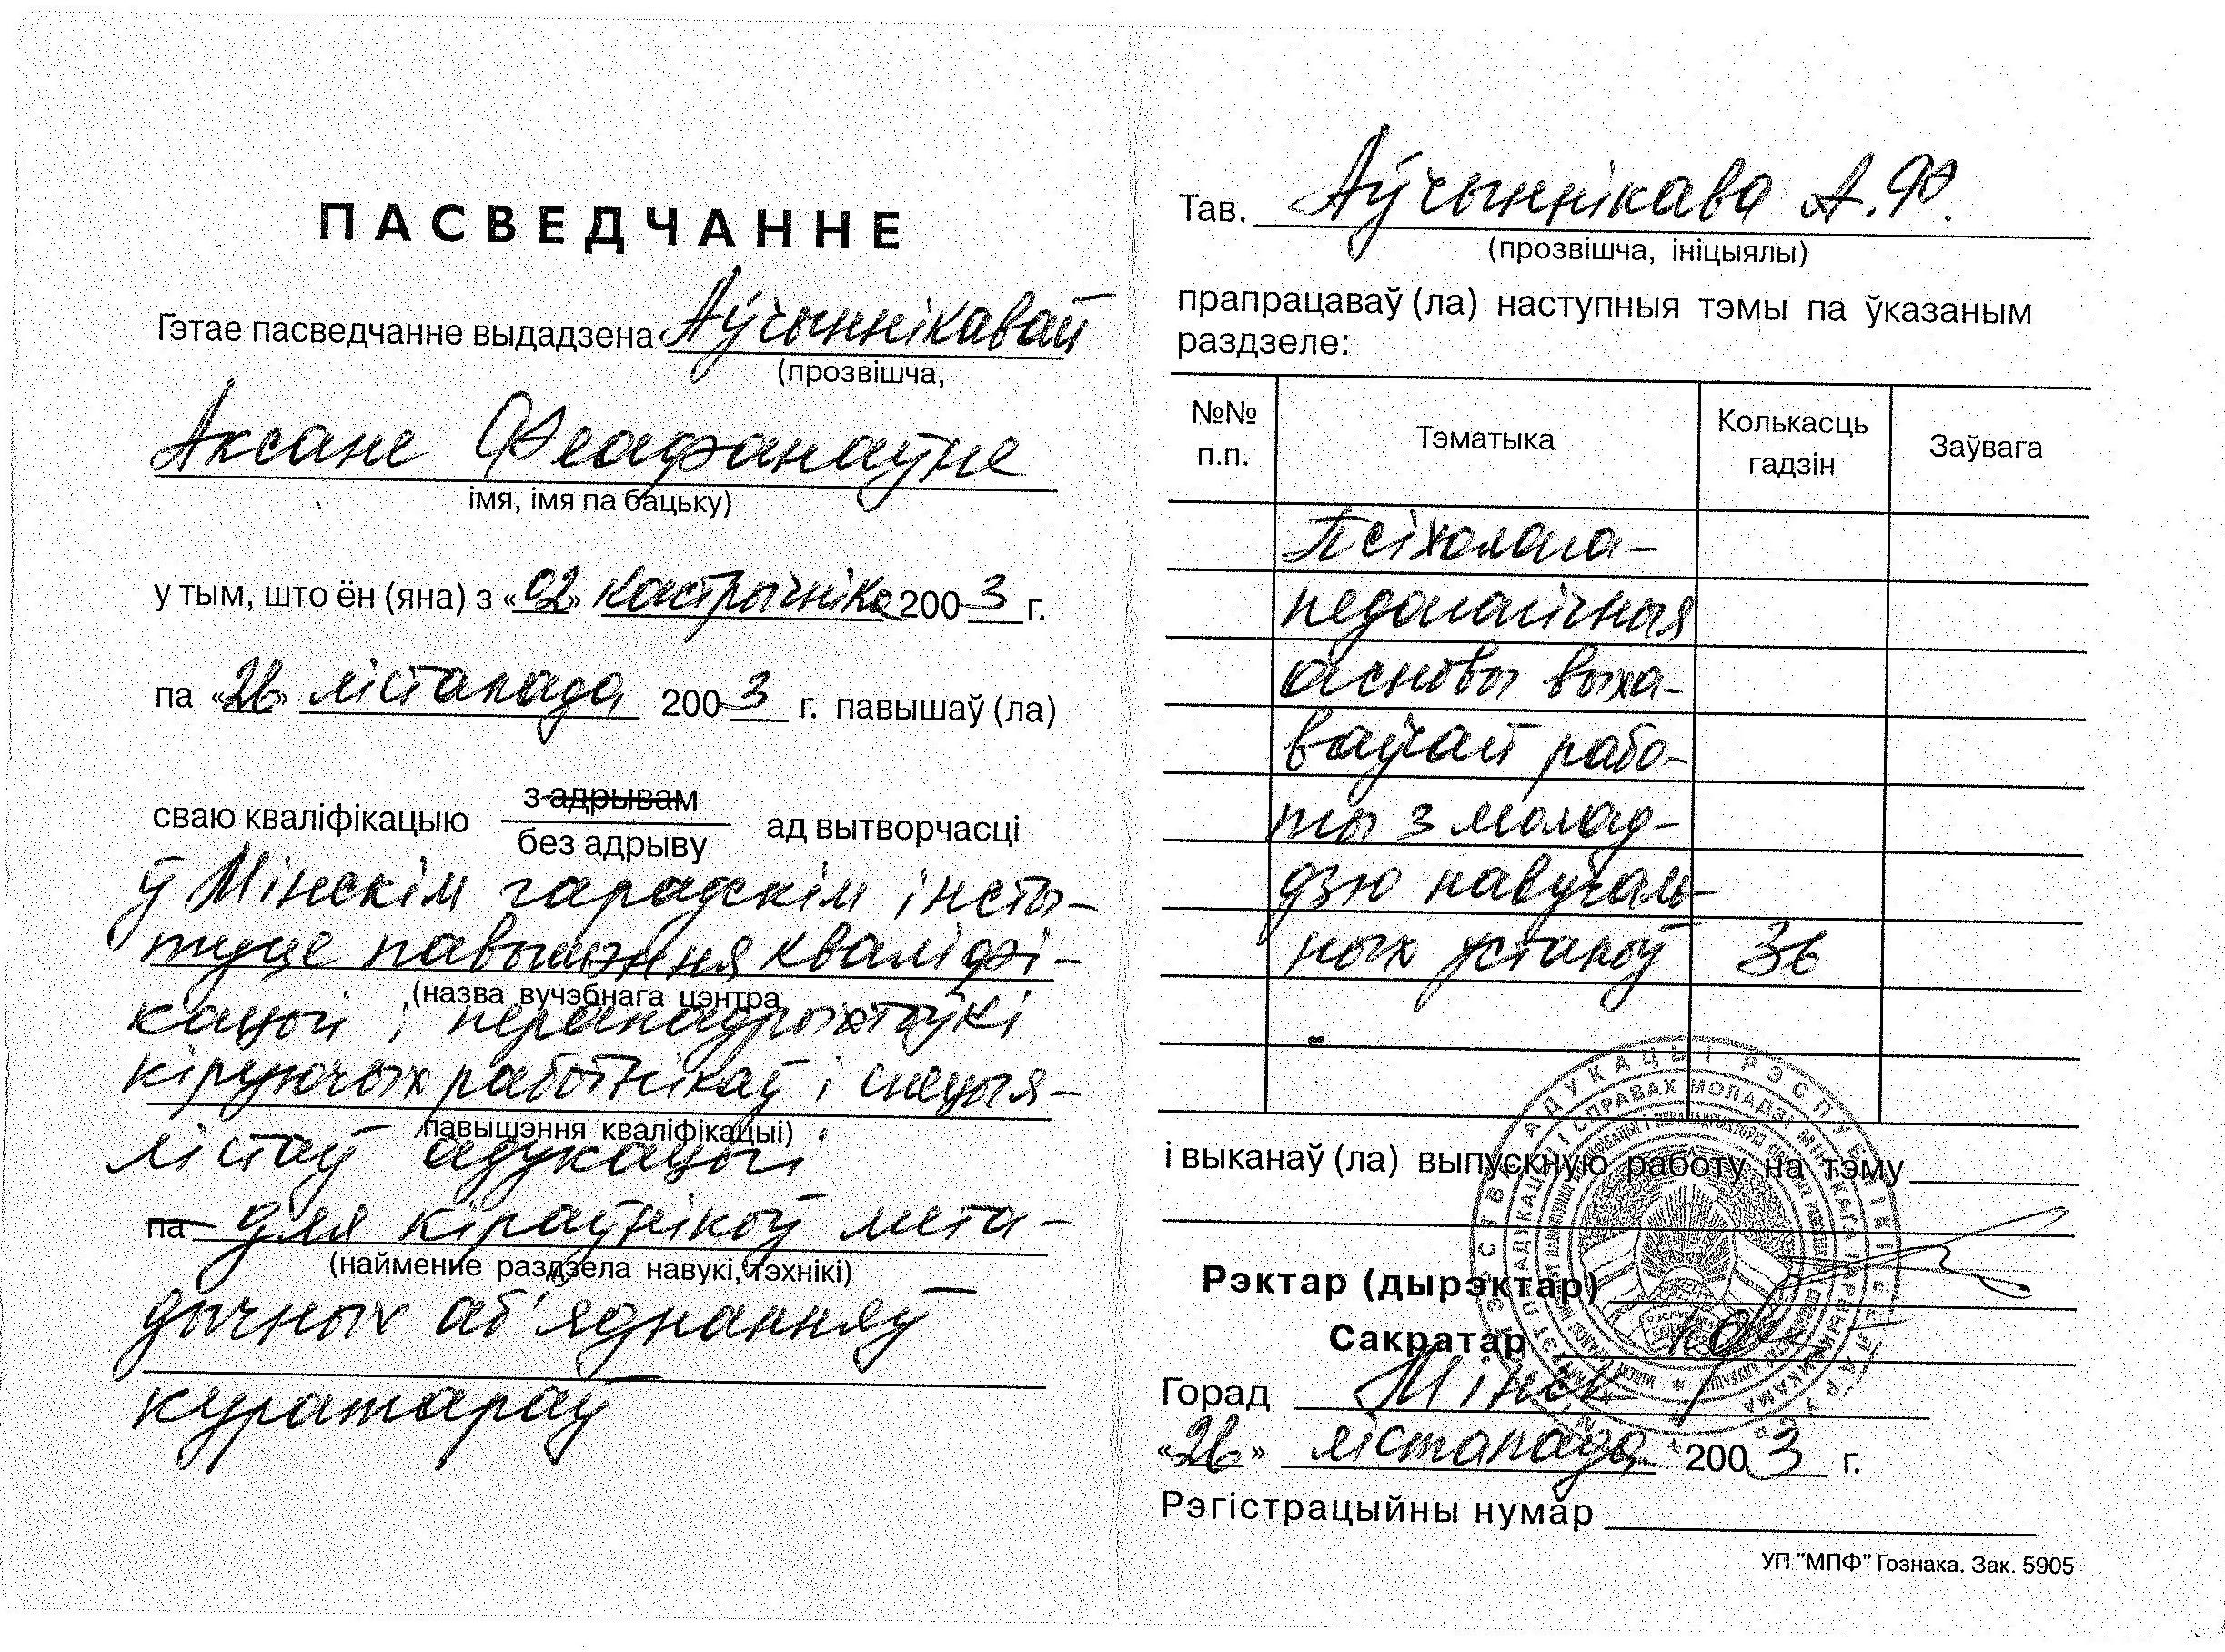 ПАСВЕДЧАННЕ
Гэтае пасведчанне выдадзена Аўчыннікавай
(прозвішча,
Аксане Феафанаўне
імя, імя па бацьку)
у тым, што ён (яна) з «02» кастрычніка 2003 г.
па «26» лістапада 2003 г. павышаў (ла)
з адрывам
сваю кваліфікацыю ад вытворчасці
без адрыву
ў Мінскім гарадскім інсты-
туце павышэння кваліфі-
(назва вучэбнага цэнтра
кацыі і перападрыхтоўкі
кіруючых работнікаў і спецыя-
павышэння кваліфікацыі)
лістаў адукацыі
па для кіраўнікоў мета-
(найменне раздзела навукі, тэхнікі)
дычных аб'яднанняў
куратараў
Тав. Аўчыннікава А.Ф.
(прозвішча, ініцыялы)
прапрацаваў (ла) наступныя тэмы па ўказаным
раздзеле:
№№ п.п. Тэматыка Колькасць гадзін Заўвага
Псіхолага-
педагагічныя
асновы выха-
ваўчай рабо-
ты з молад-
дзю навучаль-
ных устаноў 36
і выканаў (ла) выпускную работу на тэму
Рэктар (дырэктар)
Сакратар
Горад Мінск
«26» лістапада 2003 г.
Рэгістрацыйны нумар
УП "МПФ" Гознака. Зак. 5905